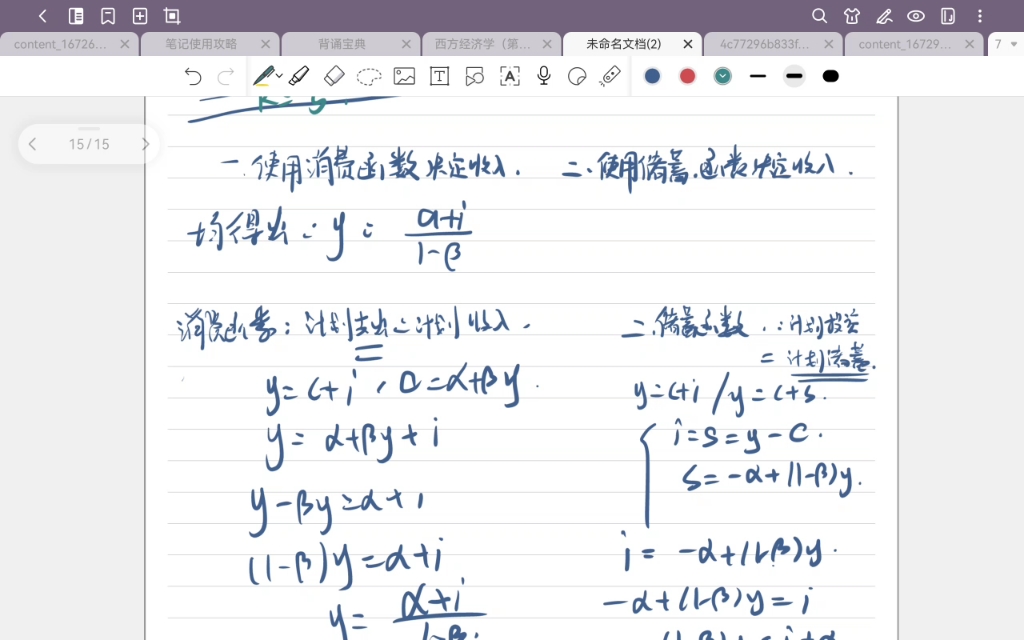 content_16726...
笔记使用攻略
背诵宝典
西方经济学（第...
未命名文档(2)
4c77296b833f...
content_16729...
7
15/15
一.使用消费函数决定收入.
二.使用储蓄函数决定收入.
均得出: y = α+i / 1-β
消费函数: 计划支出=计划收入.
y=c+i, C=α+βy.
y= α+βy+i
y-βy=α+i
(1-β)y=α+i
y= α+i / 1-β.
二.储蓄函数.: 计划投资
= 计划储蓄.
y=c+i / y=c+s.
i=s=y-c.
s=-α+(1-β)y.
i= -α+(1-β)y.
-α+(1-β)y=i
(1-β)y=i+α